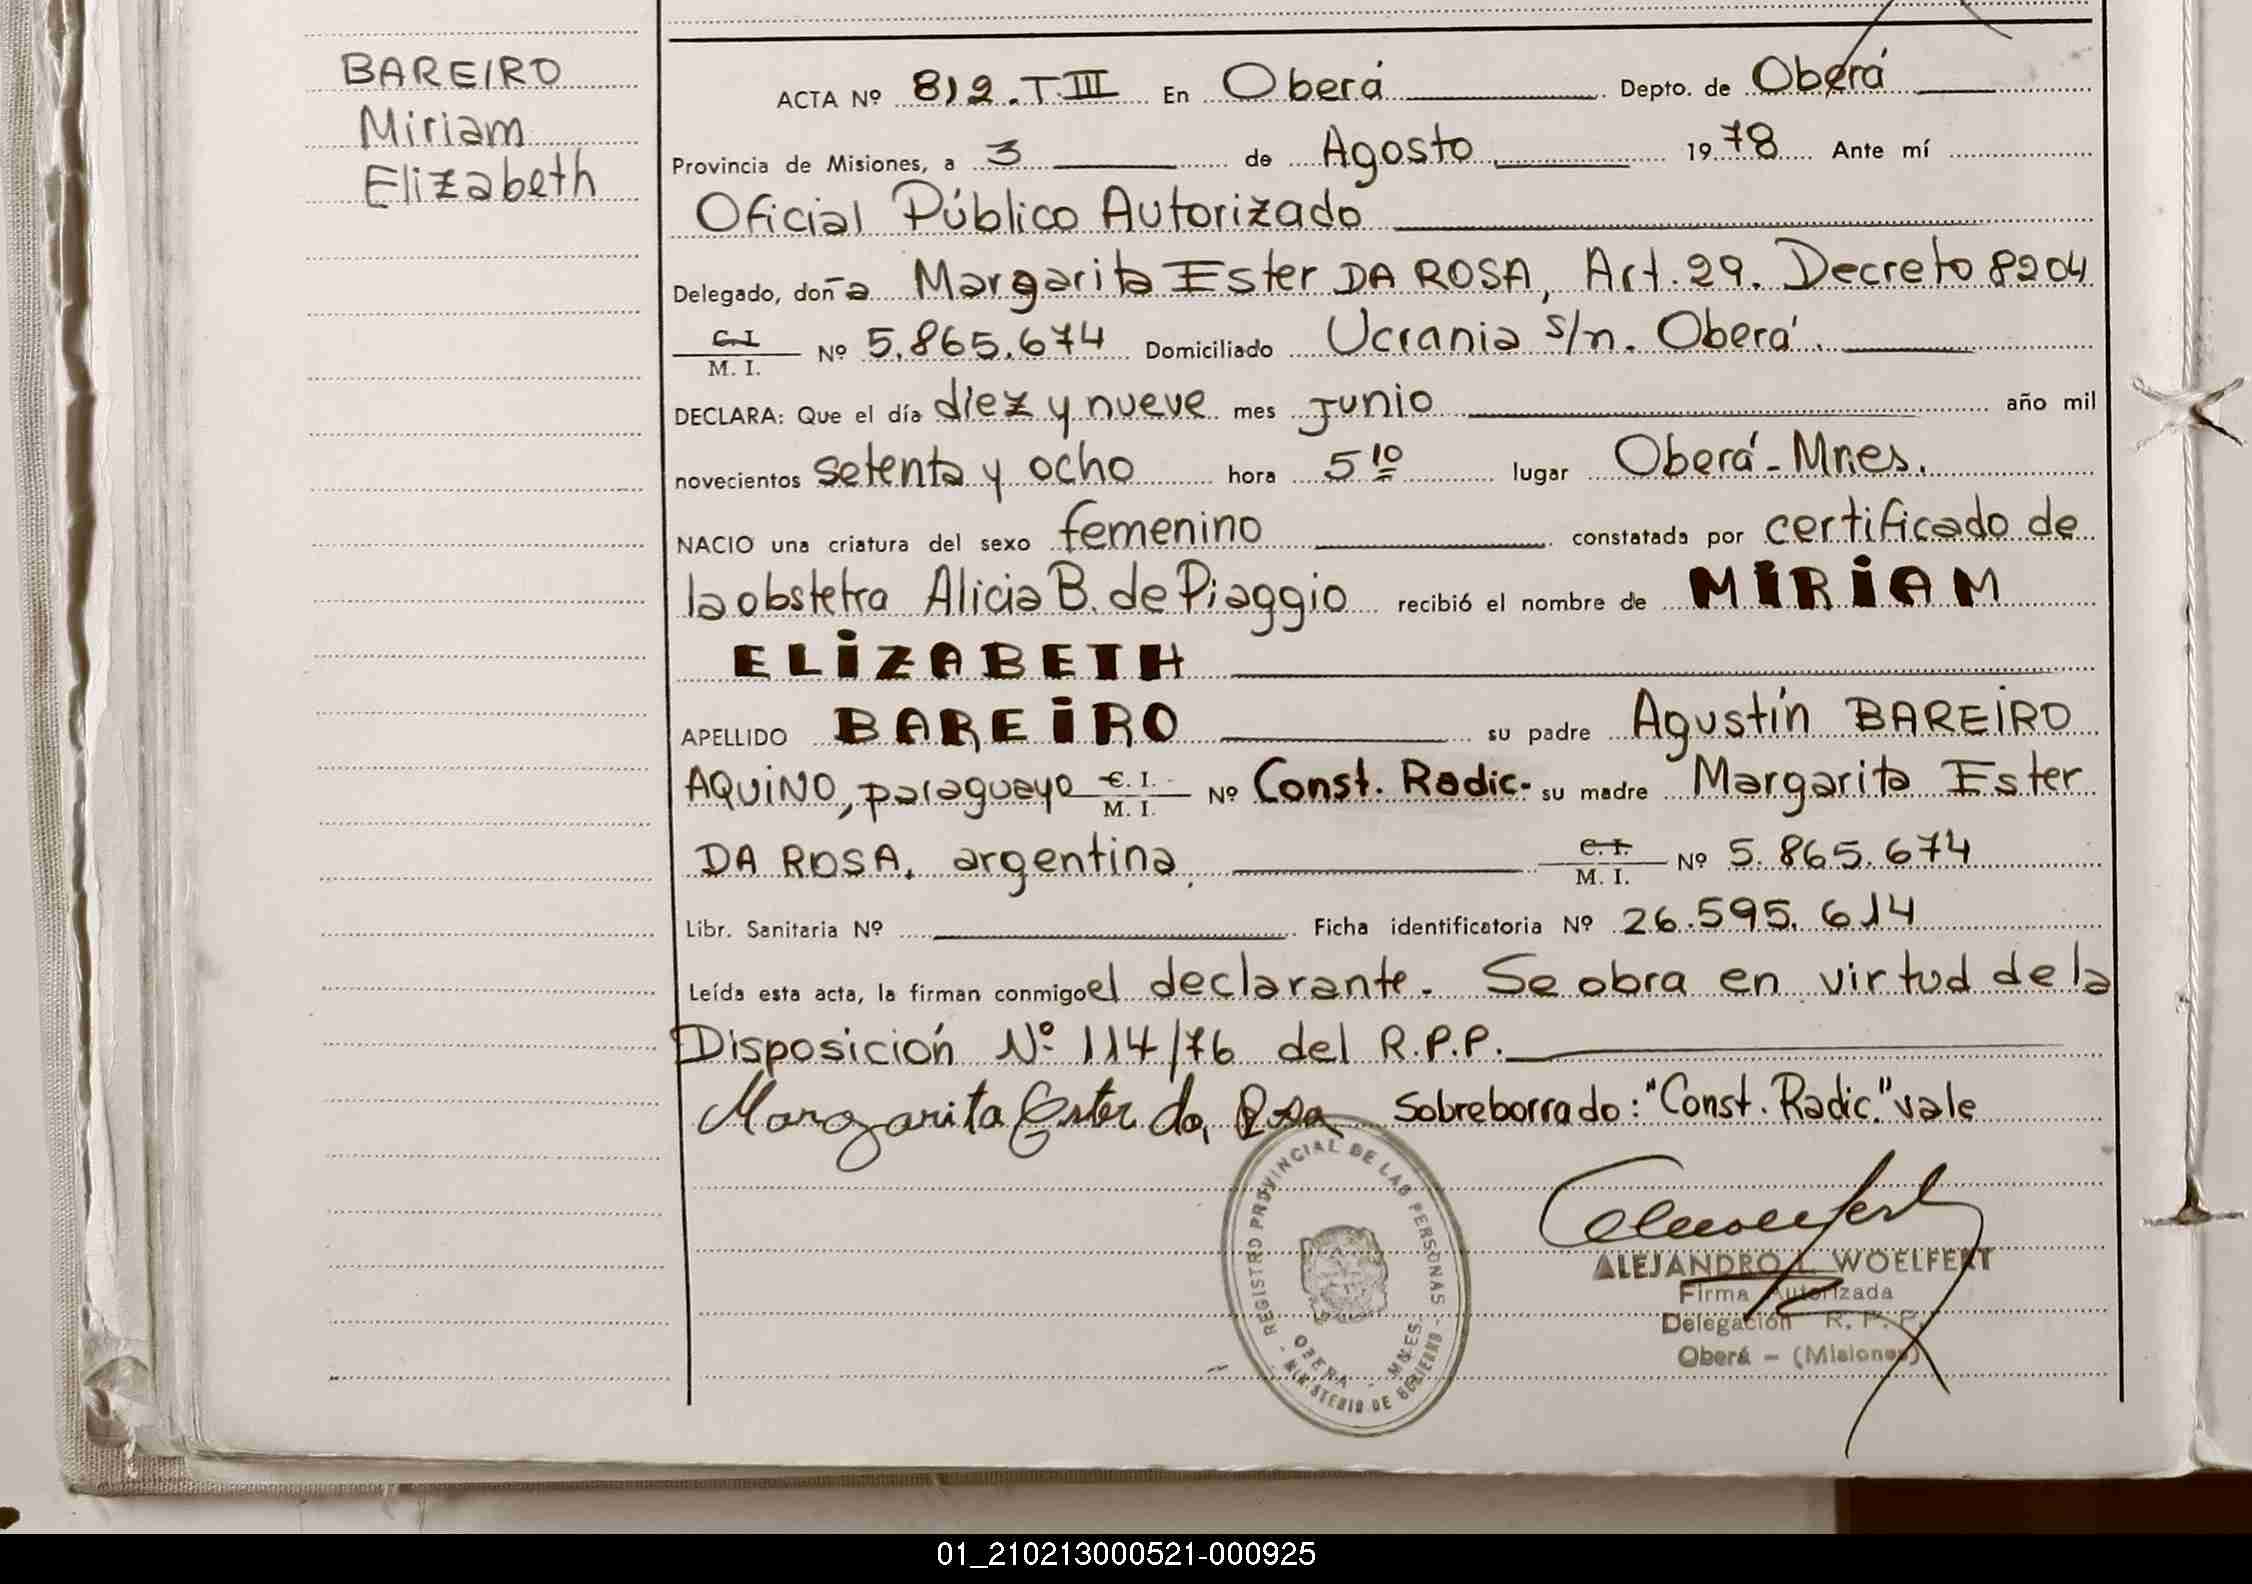 BAREIRO
Miriam
Elizabeth
ACTA Nº 812.T.III En Oberá Depto. de Oberá
Provincia de Misiones, a 3 de Agosto 1978 Ante mí
Oficial Público Autorizado
Delegado, doña Margarita Ester DA ROSA, Art. 29. Decreto 8204
C.I. M. I. Nº 5.865.674 Domiciliado Ucrania s/n. Oberá.
DECLARA: Que el día diez y nueve mes junio año mil
novecientos setenta y ocho hora 5 10 lugar Oberá - Mnes.
NACIO una criatura del sexo femenino constatada por certificado de
la obstetra Alicia B. de Piaggio recibió el nombre de MiRiAM
ELiZABETH
APELLIDO BAREiRO su padre Agustín BAREiRO
AQUiNO, paraguayo C. I. M. I. Nº Const. Radic. su madre Margarita Ester
DA ROSA, argentina. C. I. M. I. Nº 5.865.674
Libr. Sanitaria Nº Ficha identificatoria Nº 26.595.614
Leída esta acta, la firman conmigo el declarante. Se obra en virtud de la
Disposición Nº 114/76 del R.P.P.
Margarita Ester da Rosa Sobreborrado: "Const. Radic." vale
REGISTRO PROVINCIAL DE LAS PERSONAS
OBERA - MNES.
- MINISTERIO DE GOBIERNO -
ALEJANDRO L. WOELFERT
Firma Autorizada
Delegación R. P. P.
Oberá - (Misiones)
01_210213000521-000925